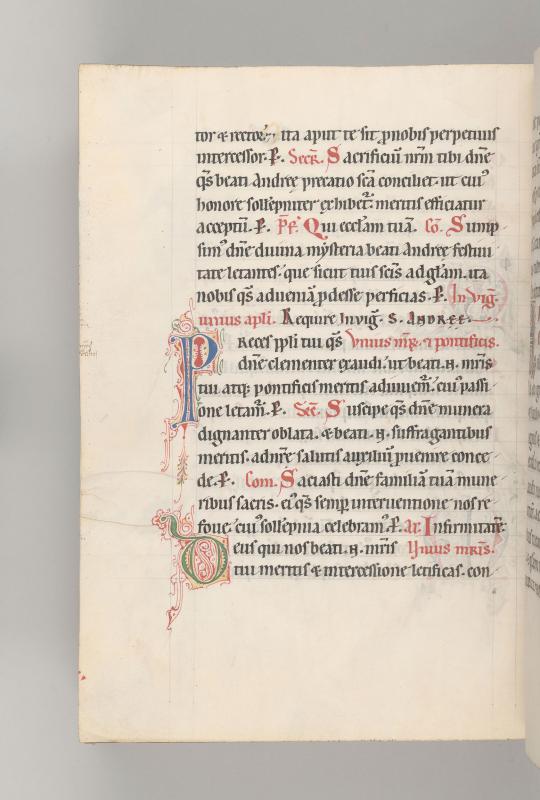 tor & rector, ita aput te sit ꝓnobis perpetuus
intercessor. P. Secř. Sacrificiū nr̄m tibi dn̄e
qs̄ beati Andreę precatio sc̄a conciliet. ut cui᾽
honore sollēpniter exhibet᷑ meritis efficiatur
acceptū. P. P̄f. Qui eccl̄am tuā. Cō. Sump
sim᾽ dn̄e diuina mysteria beati Andreę festiui
tate letantes. que sicut tuis sc̄is ad gl̄am. ita
nobis qs̄ ad ueniā ꝓdesse perficias. P. In Viḡ.
unius apl̄i. Require In uiḡ. S. ANDREE.
Preces ppl̄i tui qs̄ Vnius m̄r. & pontificis.
dn̄e clementer exaudi. ut beati .N. mr̄is
tui atq; pontificis meritis adiuuem᷑. cui᾽ passi
one letam᷑. P. Sec̄. Suscipe qs̄ dn̄e munera
dignanter oblata. & beati .N. suffragantibus
meritis. ad nr̄e salutis auxiliū ꝓuenire conce
de. P. Com. Saciasti dn̄e familiā tuā mune
ribus sacris. ei᾽ qs̄ semp̱ interuentione nos re
foue. cui᾽ sollēpnia celebram᾽. P. Al. Infirmitatē
Deus qui nos beati .N. mr̄is Vnius mr̄is.
tui meritis & intercessione letificas. con